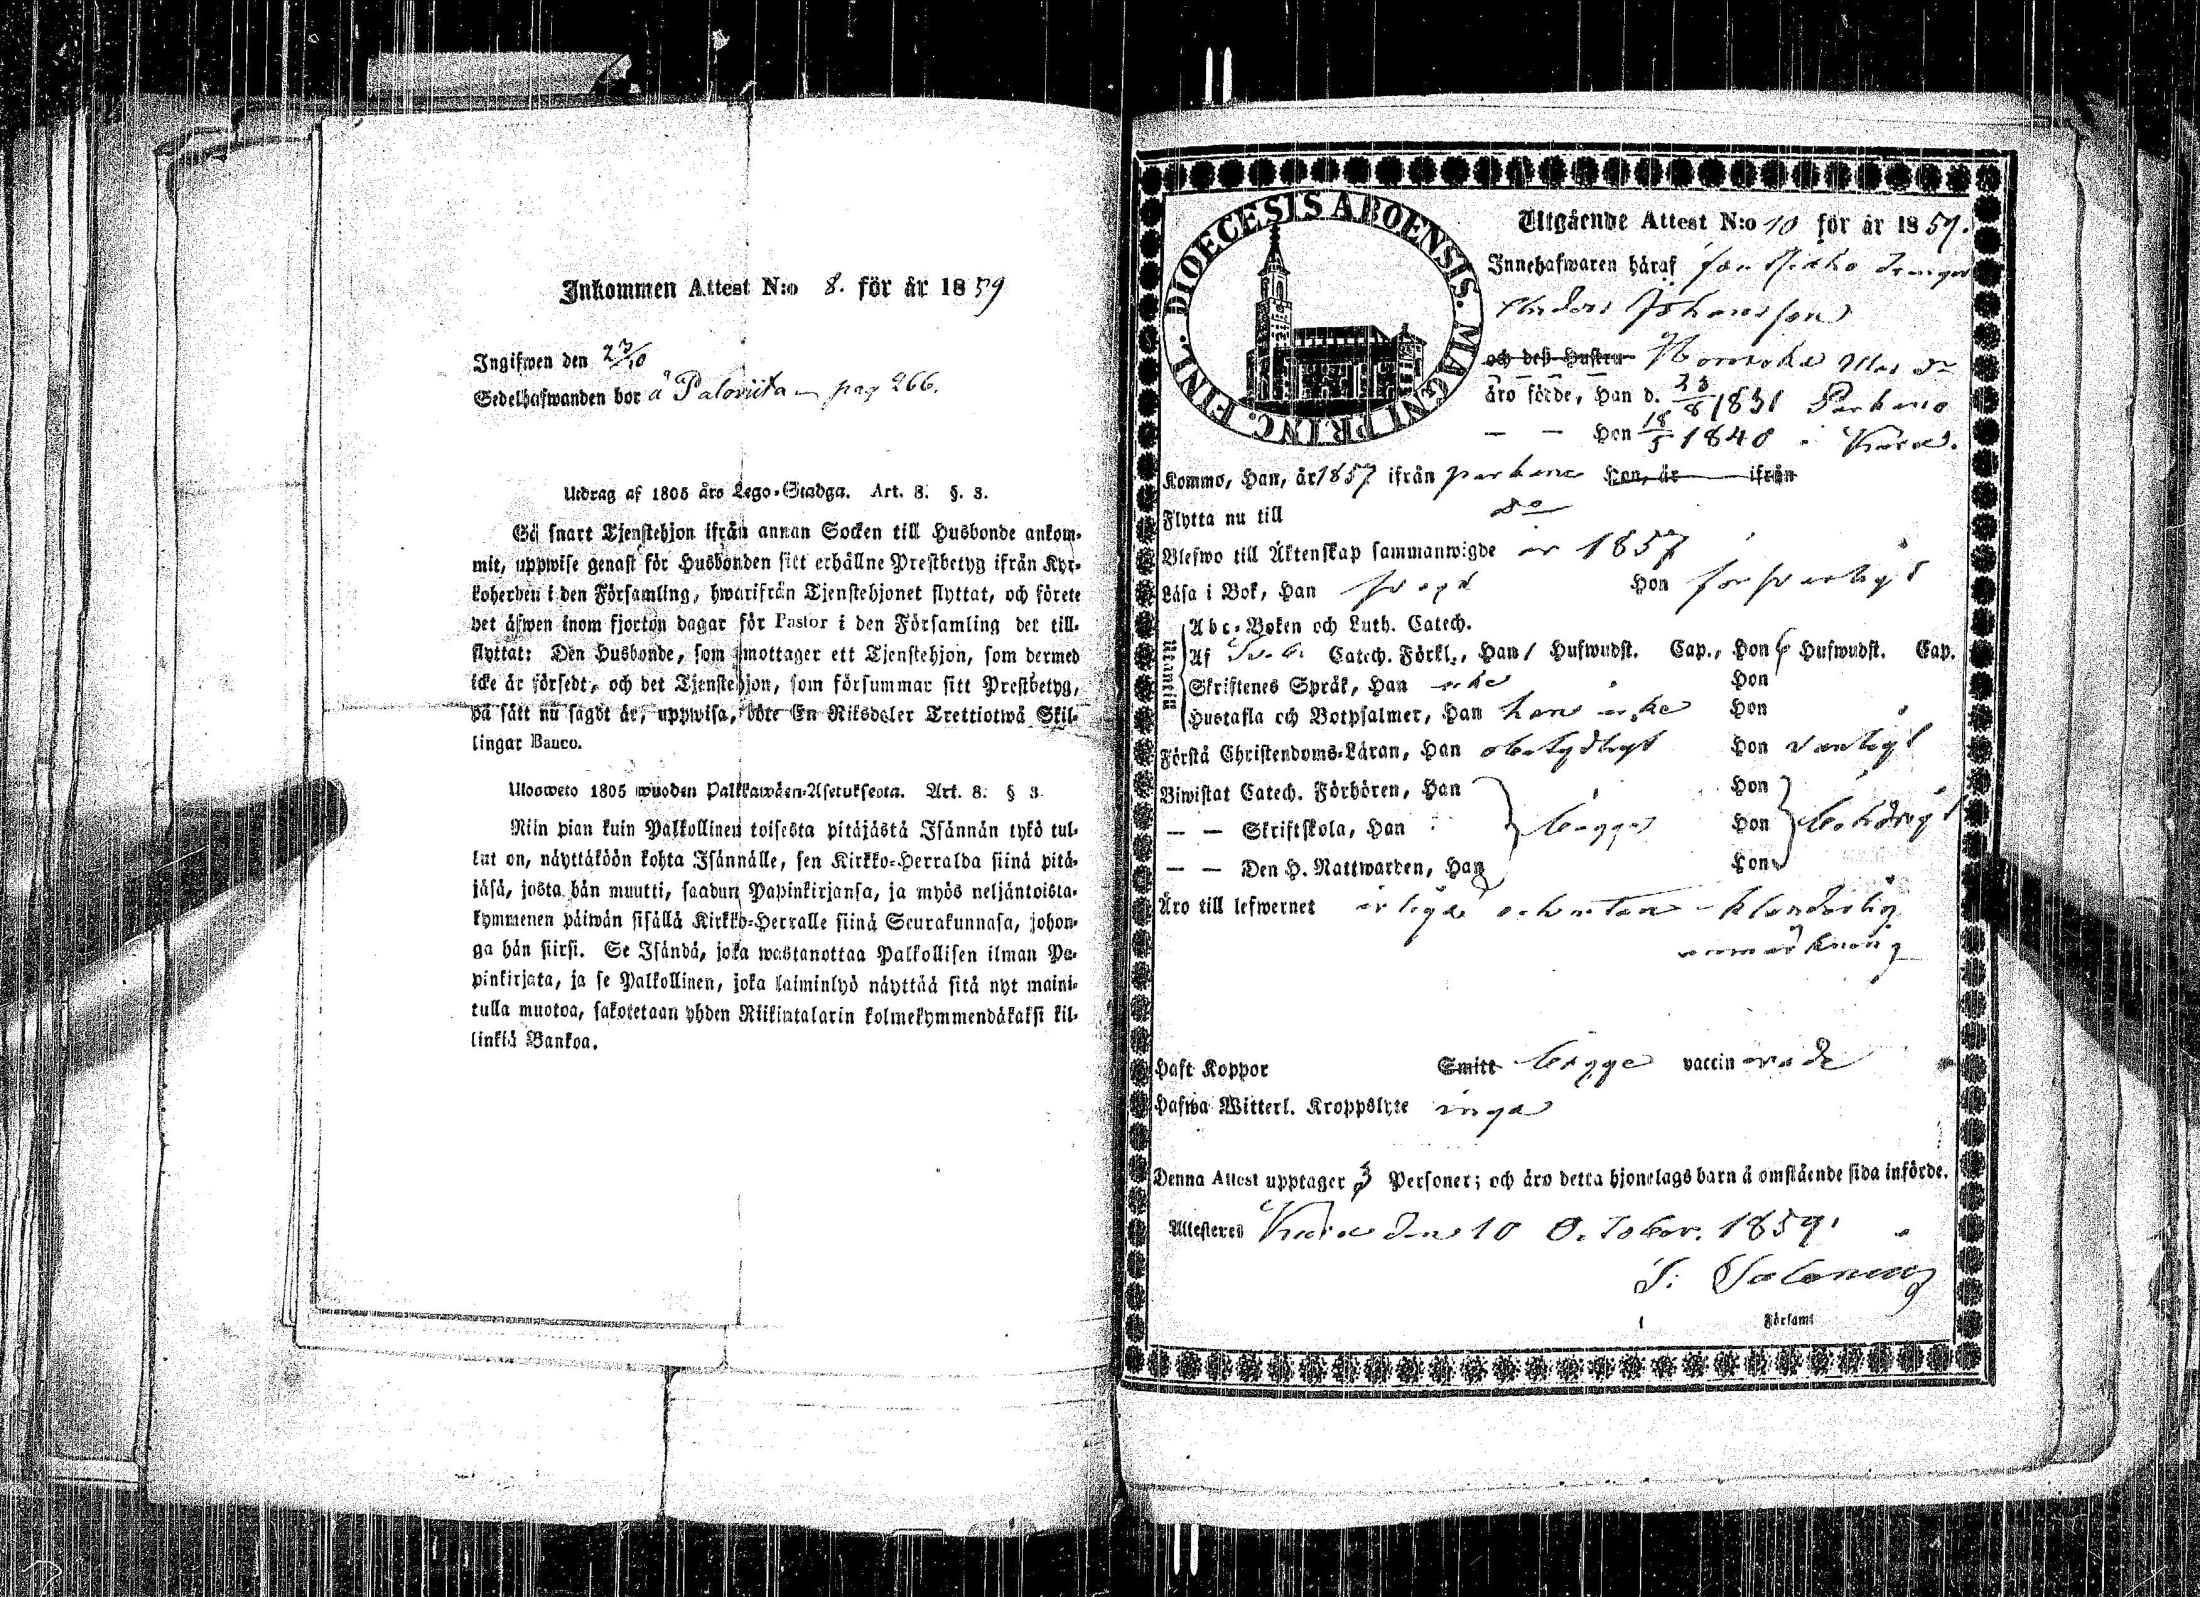 Inkommen Attest N:o 8. för år 1859
Ingifwen den 23/10
Sedelhafwanden bor å Palovista pag 266.
Utdrag af 1805 års Lego-Stadga. Art. 8. §. 3.
Så snart Tjenstehjon ifrån annan Socken till Husbonde ankom-
mit, uppwise genast för Husbonden sitt erhållne Prestbetyg ifrån Kyr-
koherden i den Församling, hwarifrån Tjenstehjonet flyttat, och förete
det äfwen inom fjorton dagar för Pastor i den Församling det till-
flyttat: Den Husbonde, som emottager ett Tjenstehjon, som dermed
icke är försedt, och det Tjenstehjon, som försummar sitt Prestbetyg,
på sätt nu sagdt är, uppwisa, böte En Riksdaler Trettiotwå Skil-
lingar Banco.
Ulosweto 1805 wuoden Palkkawäen-Asetuksesta. Art. 8. § 3
Niin pian kuin Palkollinen toisesta pitäjästä Isännän tykö tul-
lut on, näyttäköön kohta Isännälle, sen Kirkko-Herralda siinä pitä-
jäsä, josta hän muutti, saadun Papinkirjansa, ja myös neljäntoista-
kymmenen päiwän sisällä Kirkko-Herralle siinä Seurakunnasa, johon-
ga hän siirsi. Se Isändä, joka wastanottaa Palkollisen ilman Pa-
pinkirjata, ja se Palkollinen, joka laiminlyö näyttää sitä nyt maini-
tulla muotoa, sakotetaan yhden Riikintalarin kolmekymmendäkaksi kil-
linkiä Bankoa.
DIOECESIS ABOENSIS. MAGNI PRINC. FINL.
Utgående Attest N:o 10 för år 1859.
Innehafwaren häraf
Anders Johansson
och deß Hustru
äro födde, Han d. 23/8 1831 Parkano
— — Hon 18/5 1840 i
Kommo, Han, år 1857 ifrån parkano Hon, år ifrån
Flytta nu till do
Blefwo till Äktenskap sammanwigde år 1857
Läsa i Bok, Han swagt Hon förswarligt
Utantill
Abc-Boken och Luth. Catech.
Af Catech. Förkl., Han 1 Hufwudst. Cap., Hon 6 Hufwudst. Cap.
Skriftenes Språk, Han icke Hon
Hustafla och Botpsalmer, Han icke Hon
Förstå Christendoms-Läran, Han obetydligt Hon
Biwistat Catech. Förhören, Han Hon
— — Skriftskola, Han Hon
— — Den H. Nattwarden, Han Hon
Äro till lefwernet ärliga och utan klanderlig
anmärkning
Haft Koppor Smitt bägge vaccinerade
Hafwa Witterl. Kroppslyte inga
Denna Attest upptager 3 Personer; och äro detta hjonelags barn å omstående sida införde.
Attesteres den 10 October. 1859.
Församl